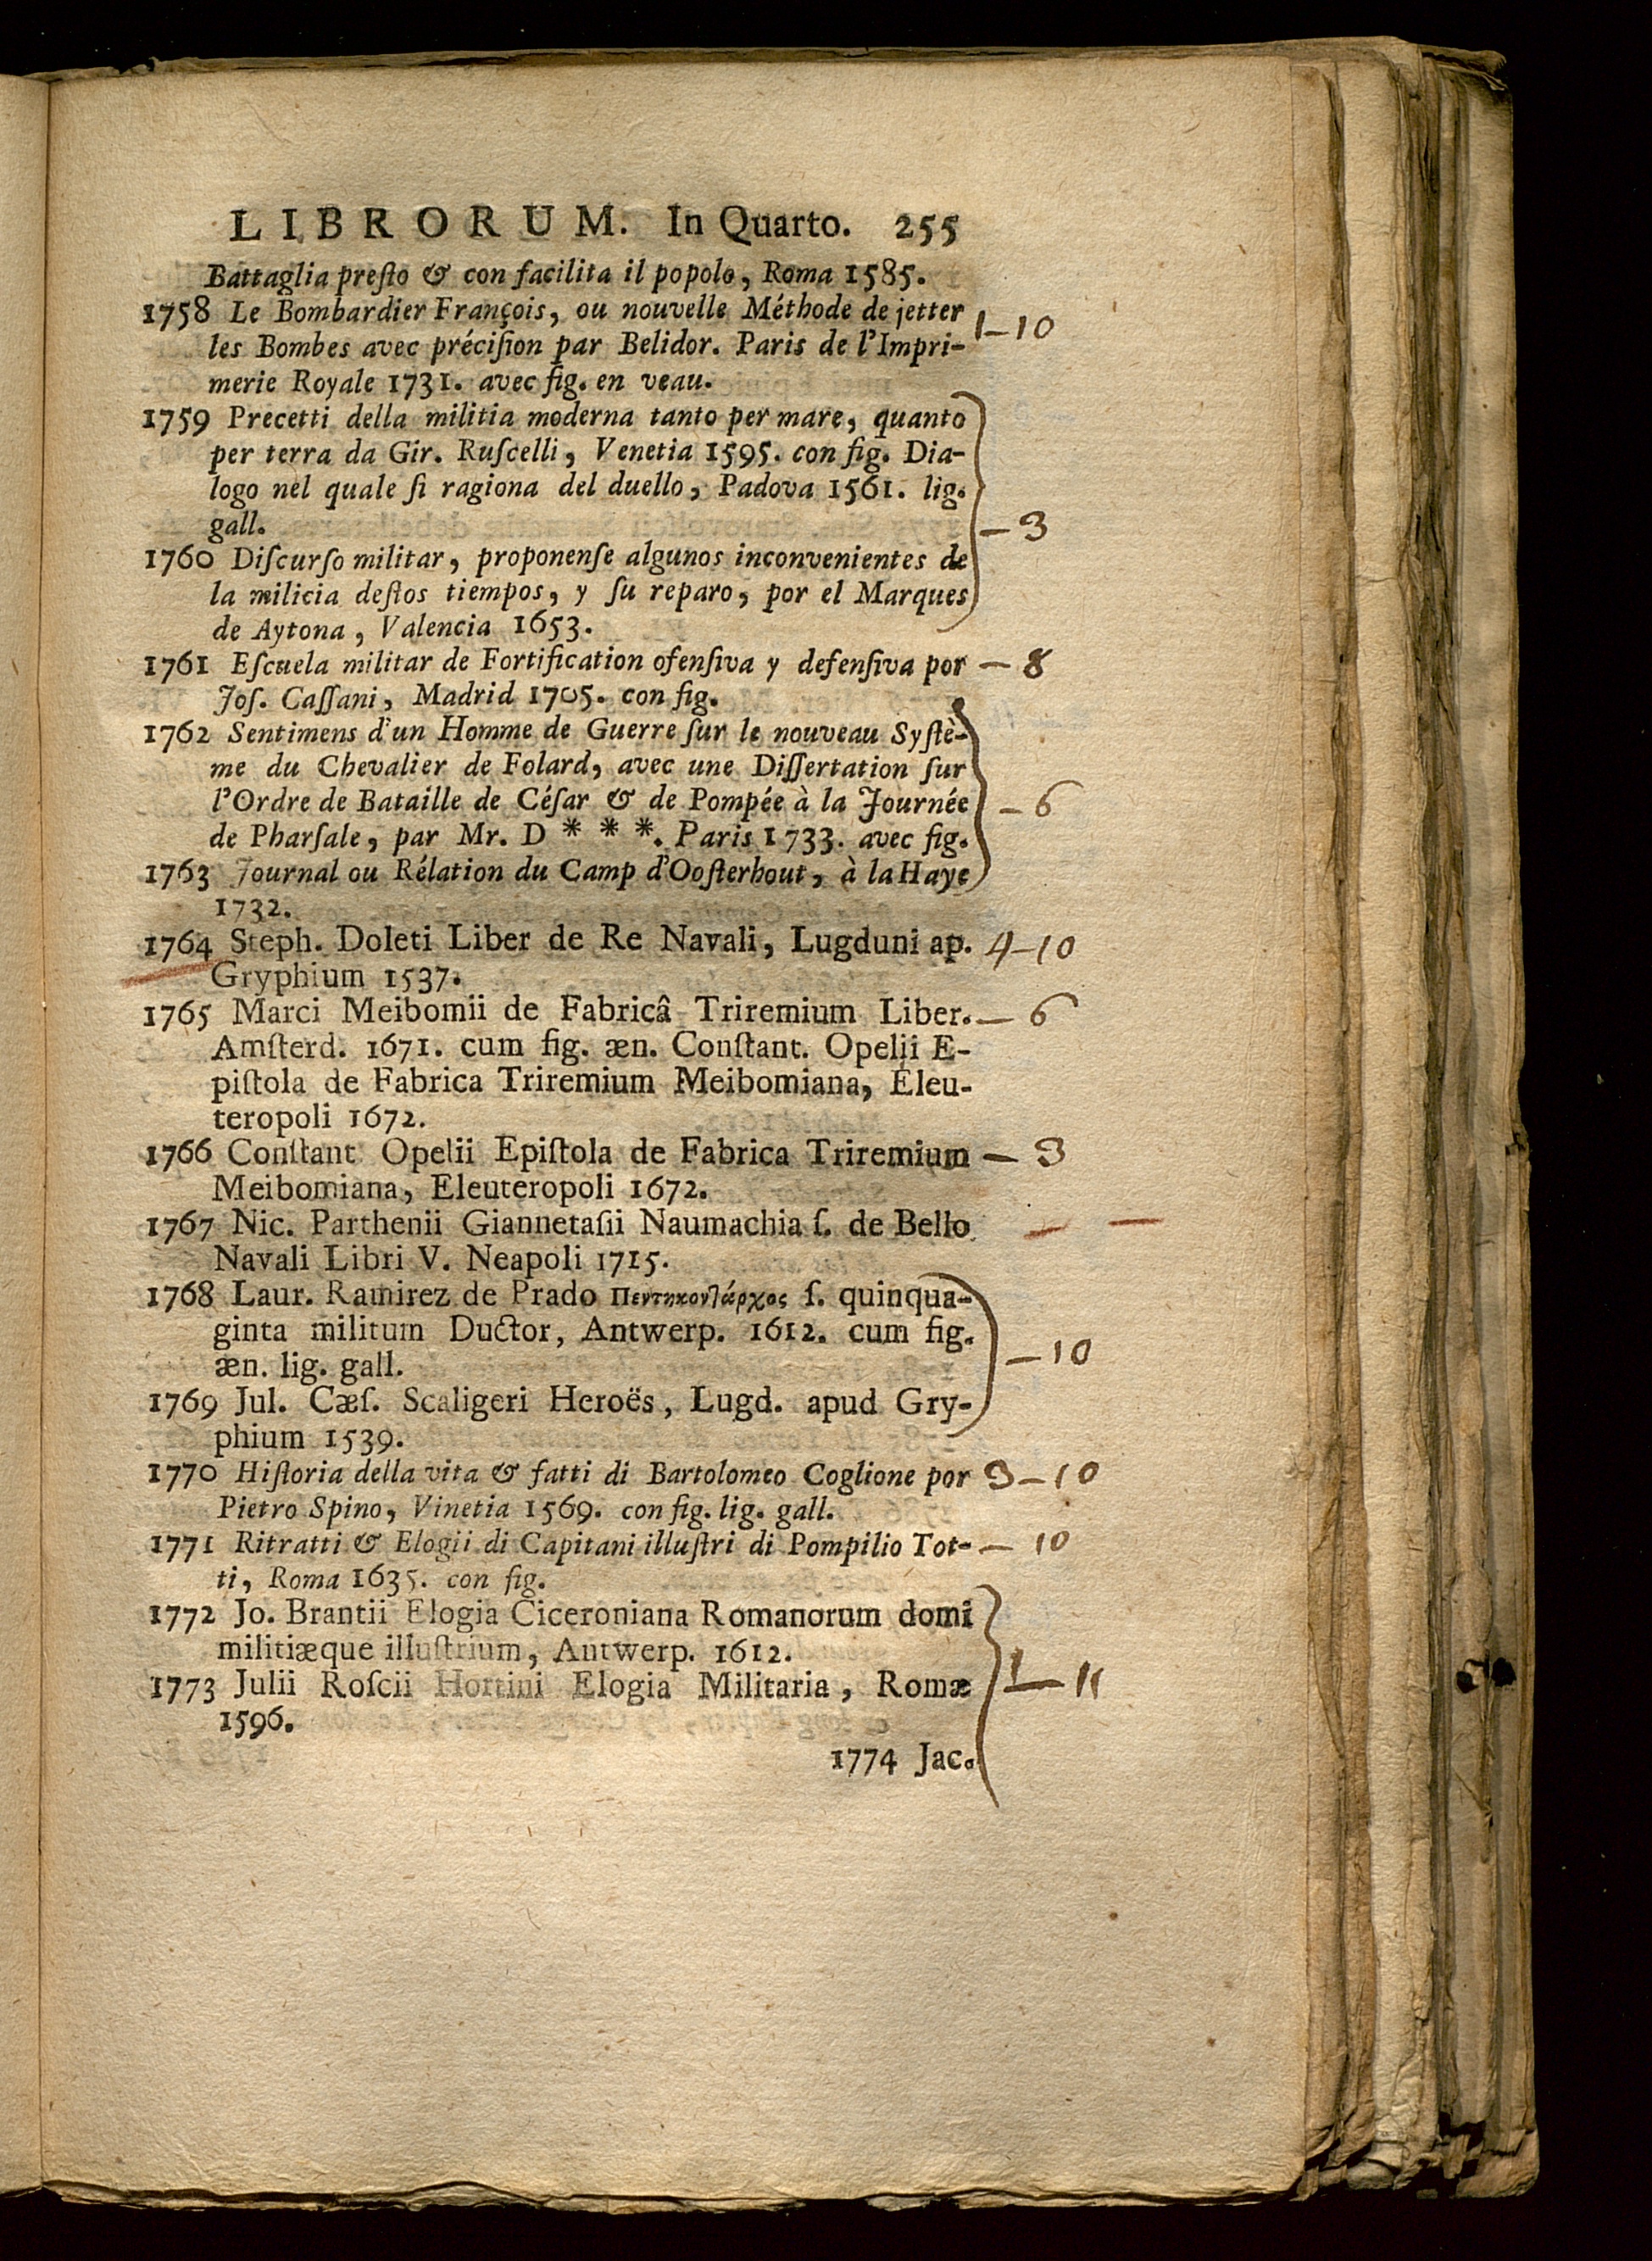 LIBRORUM. In Quarto. 255
Battaglia preſto & con facilita il popolo, Roma 1585.
1758 Le Bombardier François, ou nouvelle Méthode de jetter 1-10
les Bombes avec préciſion par Belidor. Paris de l'Impri-
merie Royale 1731. avec fig. en veau.
1759 Precetti della militia moderna tanto per mare, quanto
per terra da Gir. Ruſcelli, Venetia 1595. con fig. Dia-
logo nel quale ſi ragiona del duello, Padova 1561. lig.
gall. - 3
1760 Diſcurſo militar, proponenſe algunos inconvenientes de
la milicia deſtos tiempos, y ſu reparo, por el Marques
de Aytona, Valencia 1653.
1761 Eſcuela militar de Fortification ofenſiva y defenſiva por - 8
Joſ. Caſſani, Madrid 1705. con fig.
1762 Sentimens d'un Homme de Guerre ſur le nouveau Syſtè-
me du Chevalier de Folard, avec une Diſſertation ſur
l'Ordre de Bataille de Céſar & de Pompée à la Journée - 6
de Pharſale, par Mr. D * * *. Paris 1733. avec fig.
1763 Journal ou Rélation du Camp d'Ooſterhout, à la Haye
1732.
1764 Steph. Doleti Liber de Re Navali, Lugduni ap. 4-10
Gryphium 1537.
1765 Marci Meibomii de Fabricâ Triremium Liber. - 6
Amſterd. 1671. cum fig. æn. Conſtant. Opelii E-
piſtola de Fabrica Triremium Meibomiana, Eleu-
teropoli 1672.
1766 Conſtant Opelii Epiſtola de Fabrica Triremium - 3
Meibomiana, Eleuteropoli 1672.
1767 Nic. Parthenii Giannetaſii Naumachia ſ. de Bello - -
Navali Libri V. Neapoli 1715.
1768 Laur. Ramirez de Prado Πεντηκοντάρχος ſ. quinqua-
ginta militum Ductor, Antwerp. 1612. cum fig.
æn. lig. gall. - 10
1769 Jul. Cæſ. Scaligeri Heroës, Lugd. apud Gry-
phium 1539.
1770 Hiſtoria della vita & fatti di Bartolomeo Coglione por 3-10
Pietro Spino, Vinetia 1569. con fig. lig. gall.
1771 Ritratti & Elogii di Capitani illuſtri di Pompilio Tot- - 10
ti, Roma 1635. con fig.
1772 Jo. Brantii Elogia Ciceroniana Romanorum domi
militiæque illuſtrium, Antwerp. 1612.
1773 Julii Roſcii Hortini Elogia Militaria, Romæ 1-11
1596.
1774 Jac.